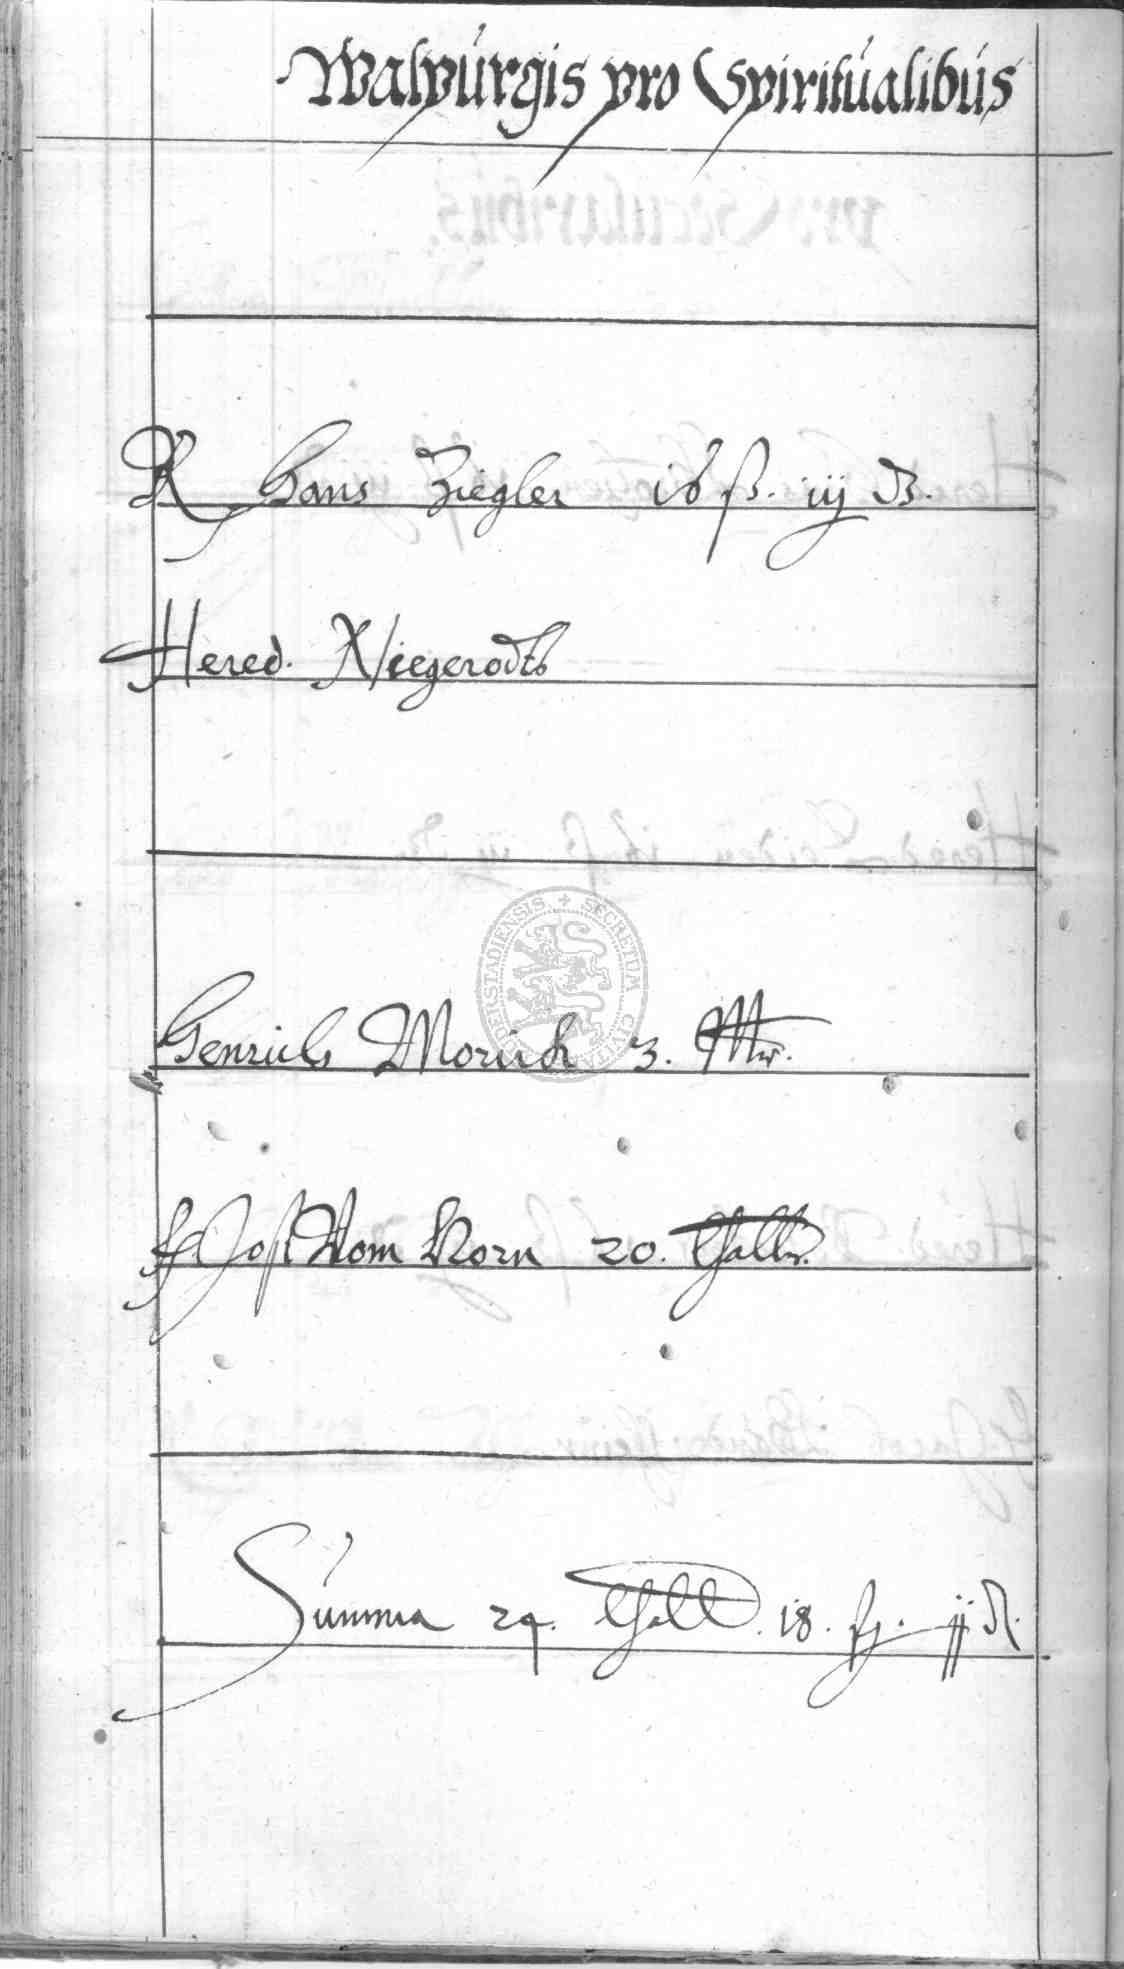 Walpurgis pro Spiritualibus
Hans Ziegler 16 ß. iij
Hered.
Henrich Morich 3. Mr.
Jost Vom Korn 20. Thall.
Summa 24. Thall. 18. ij
SECRETUM CIVITA DERSTADIENSIS